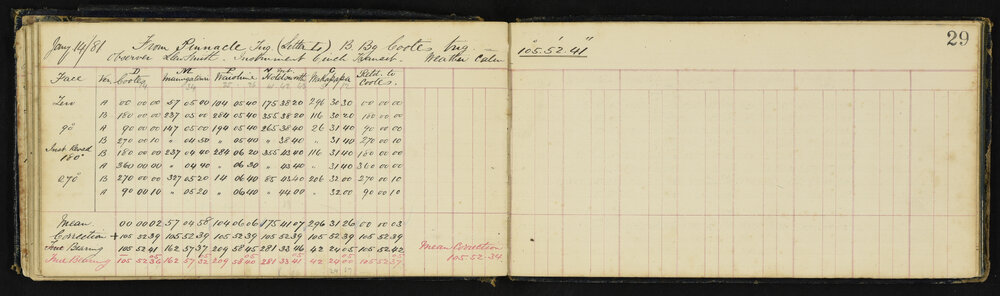 29
Jany 14/81 From Pinnacle Trig (Letter to) B. Bg Cootes Trig = 105°.52'.41"
Observer Instrument 6 inch Transit. Weather Calm
Face Ver Cootes Waiohine Holdsworth Wakapapa Retd. to Cootes.
Zero A 00 00 00 57 05 00 104 05 40 175 38 20 296 30 30 00 00 00
B 180 00 00 237 05 00 284 05 40 355 38 20 116 30 20 180 00 00
90° A 90 00 00 147 05 00 194 05 40 265 38 40 26 31 40 90 00 00
B 270 00 10 " 04 50 " 05 40 " 38 40 " 31 40 270 00 10
Inst Revsd 180° B 180 00 00 237 04 40 284 06 20 355 43 40 116 31 40 180 00 00
A 360 00 00 " 04 40 " 06 30 " 43 40 " 31 40 360 00 00
270° B 270 00 00 327 05 20 14 06 40 85 43 40 206 32 00 270 00 10
A 90 00 10 " 05 20 " 06 40 " 44 00 " 32 00 90 00 10
Mean 00 00 02 57 04 58 104 06 06 175 41 07 296 31 26 00 00 03
Correction + 105 52 39 105 52 39 105 52 39 105 52 39 105 52 39 105 52 39
True Bearing 105 52 41 162 57 37 209 58 45 281 33 46 42 24 05 105 52 42
Mean Correction
True Bearing 105 52 36 162 57 32 209 58 40 281 33 41 42 24 00 105 52 37
105.52.34.